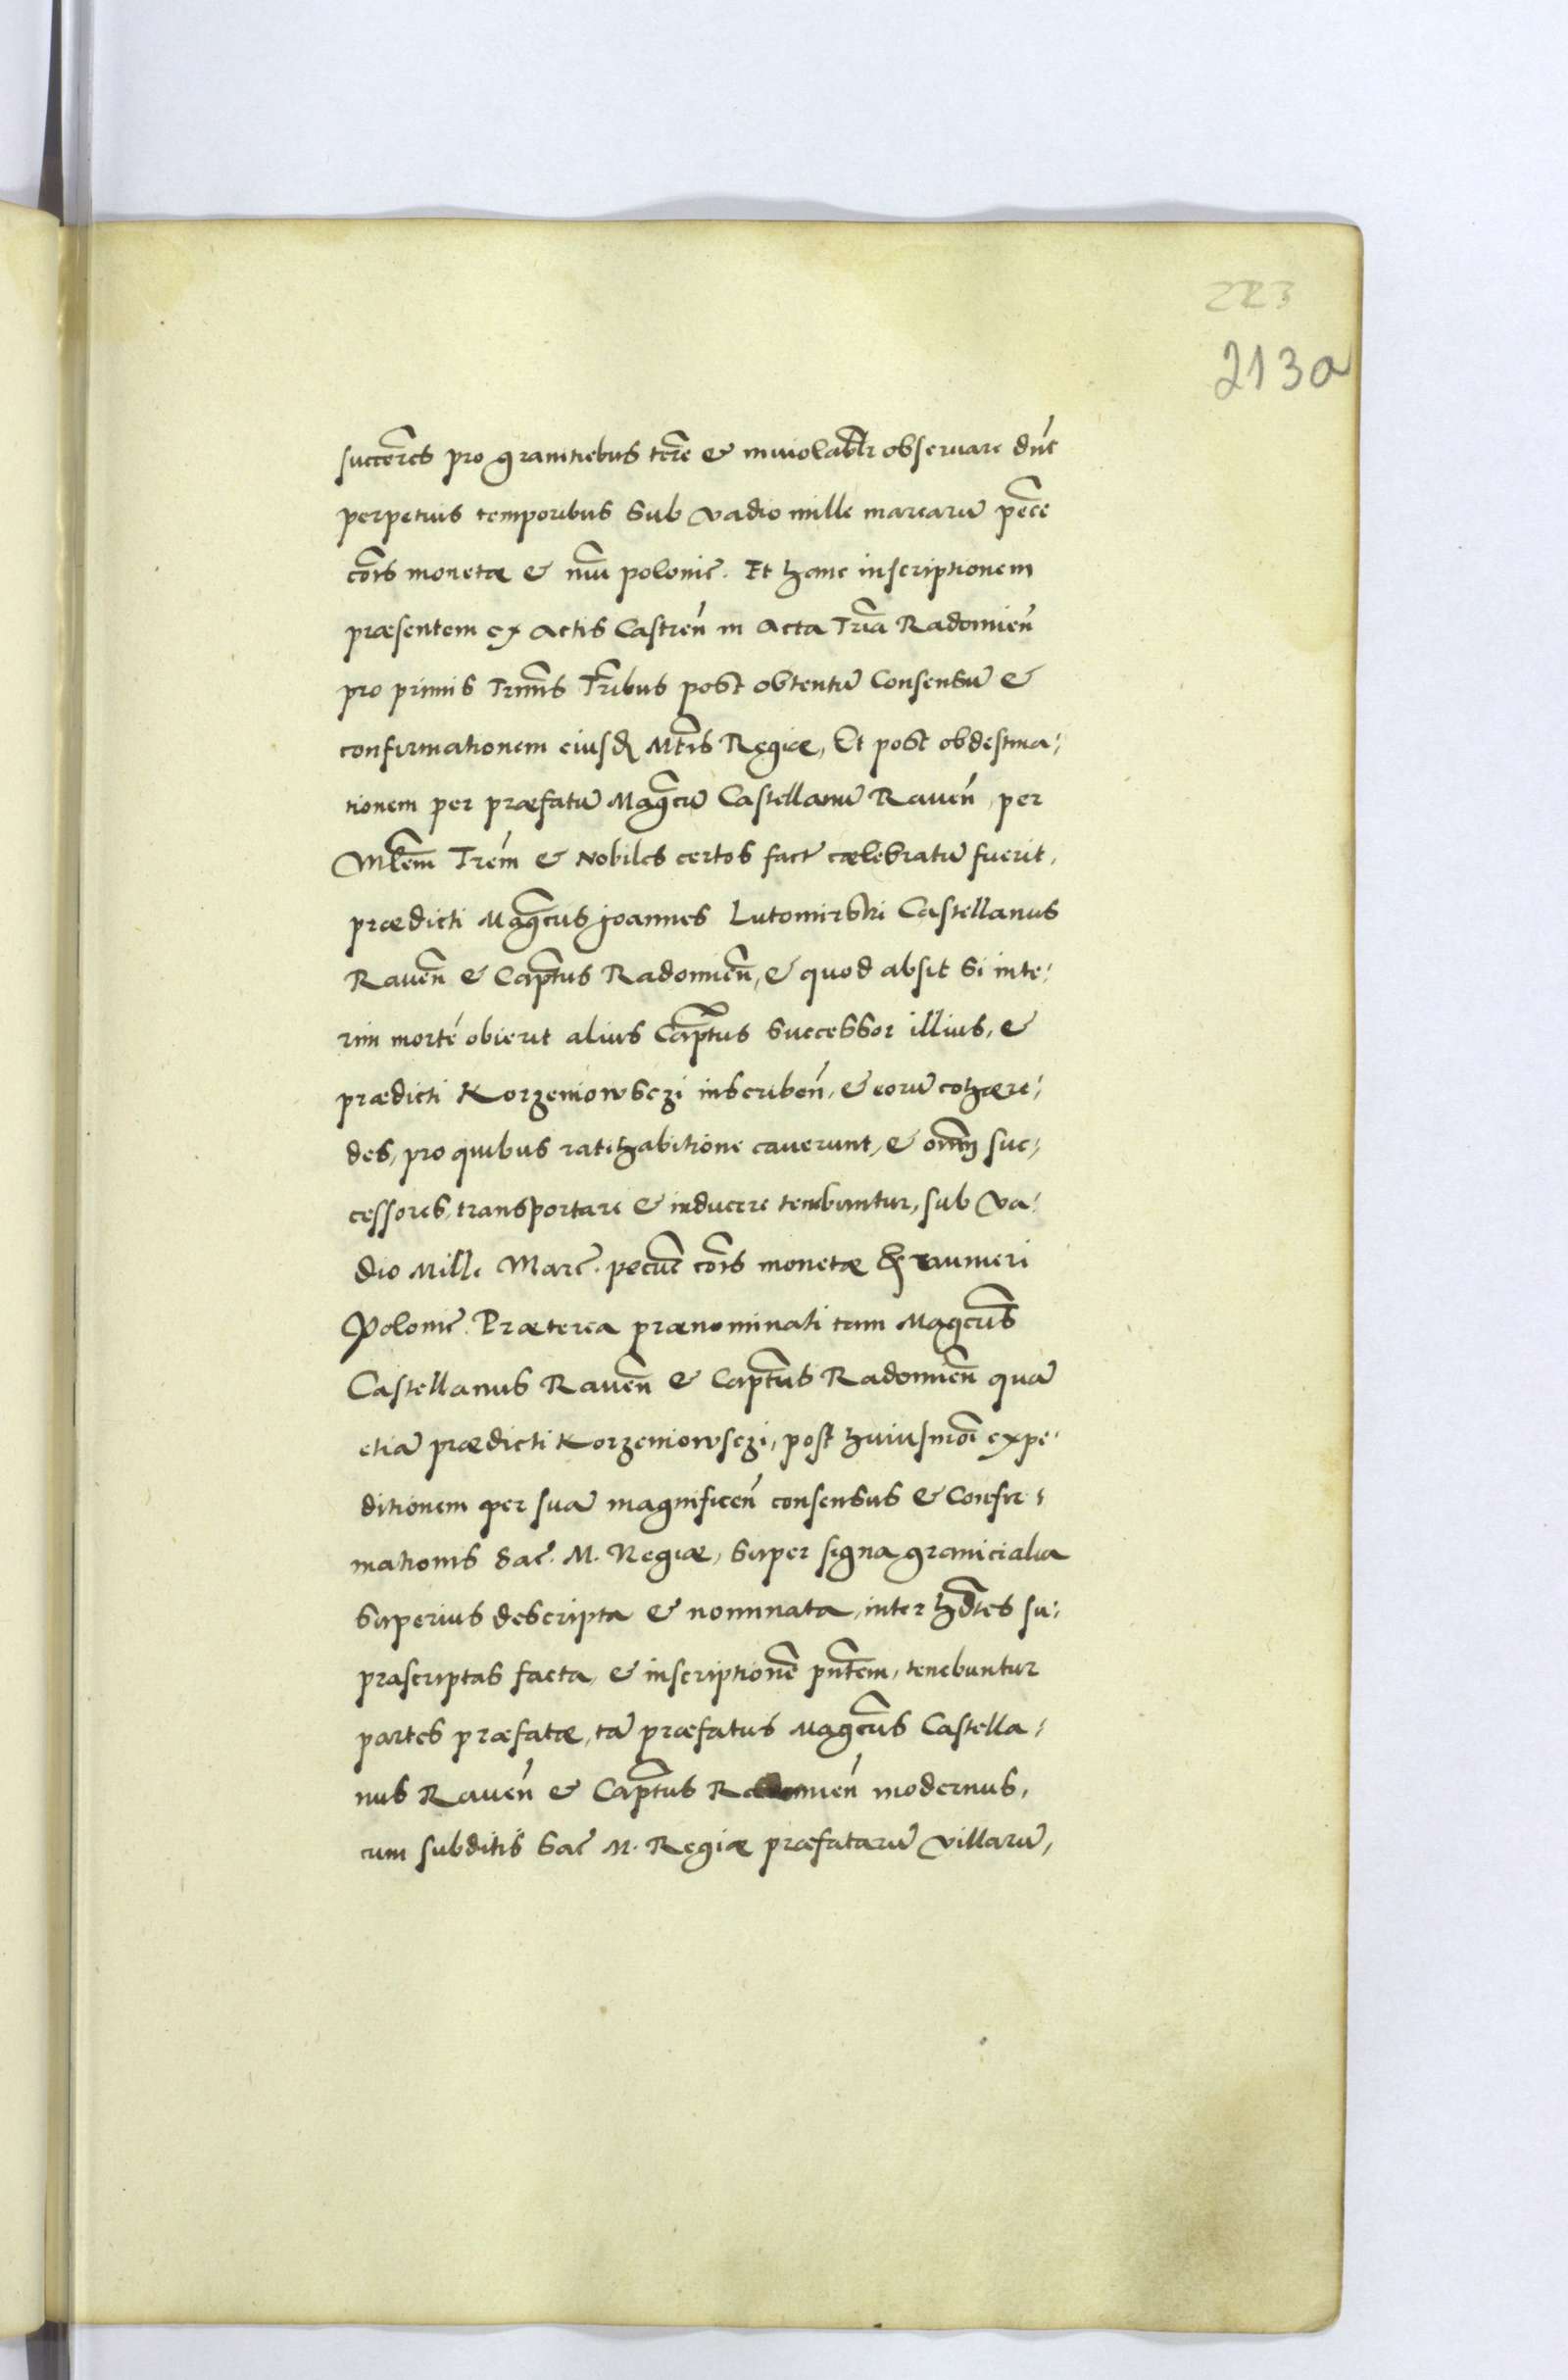 223
213a
succeres pro granitiebus tere & inviolabtr observare dnt
perpetuis temporibus sub vadio mille marcarū pece
cois monetæ & nui polonic. Et hanc inscriptionem
præsentem ex actis Castren in acta Tria Radomien
pro primis Trmis Tribus post obtentū Consensū &
confirmationem eiusd Mtis Regiæ, Et post obdestina:
tionem per præfatū Magcū Castellanū Raven, per
Mlem Trem & Nobiles certos fact cælebratū fuerit,
prædicti Magcus Joannes Lutomirski Castellanus
Raven & Captus Radomien, & quod absit si inte:
rim morté obierit alius Captus successor illius, &
prædicti Korzeniowsczi inscriben, & eorū cohære:
des, pro quibus ratihabitione caverunt, & omnes suc:
cessores, transportare & inducere tenebuntur, sub va:
dio Mille Marc. pecuē cois monetæ numeri
Polonic. Præterea prænominati tam Magcus
Castellanus Raven & Captus Radomien quā
etiā prædicti Korzeniowsczi, post huiusmoi expe:
ditionem per suā magnificen consensus & Confir:
mationis Sac. M. Regiæ, super signa granicialia
superius descripta & nominata, inter hdtes su:
prascriptas facta, & inscriptionē pntem, tenebuntur
partes præfatæ, tā præfatus Magcus Castella:
nus Raven & Captus Radomien modernus,
cum subditis Sac M. Regiæ præfatarū villarū,